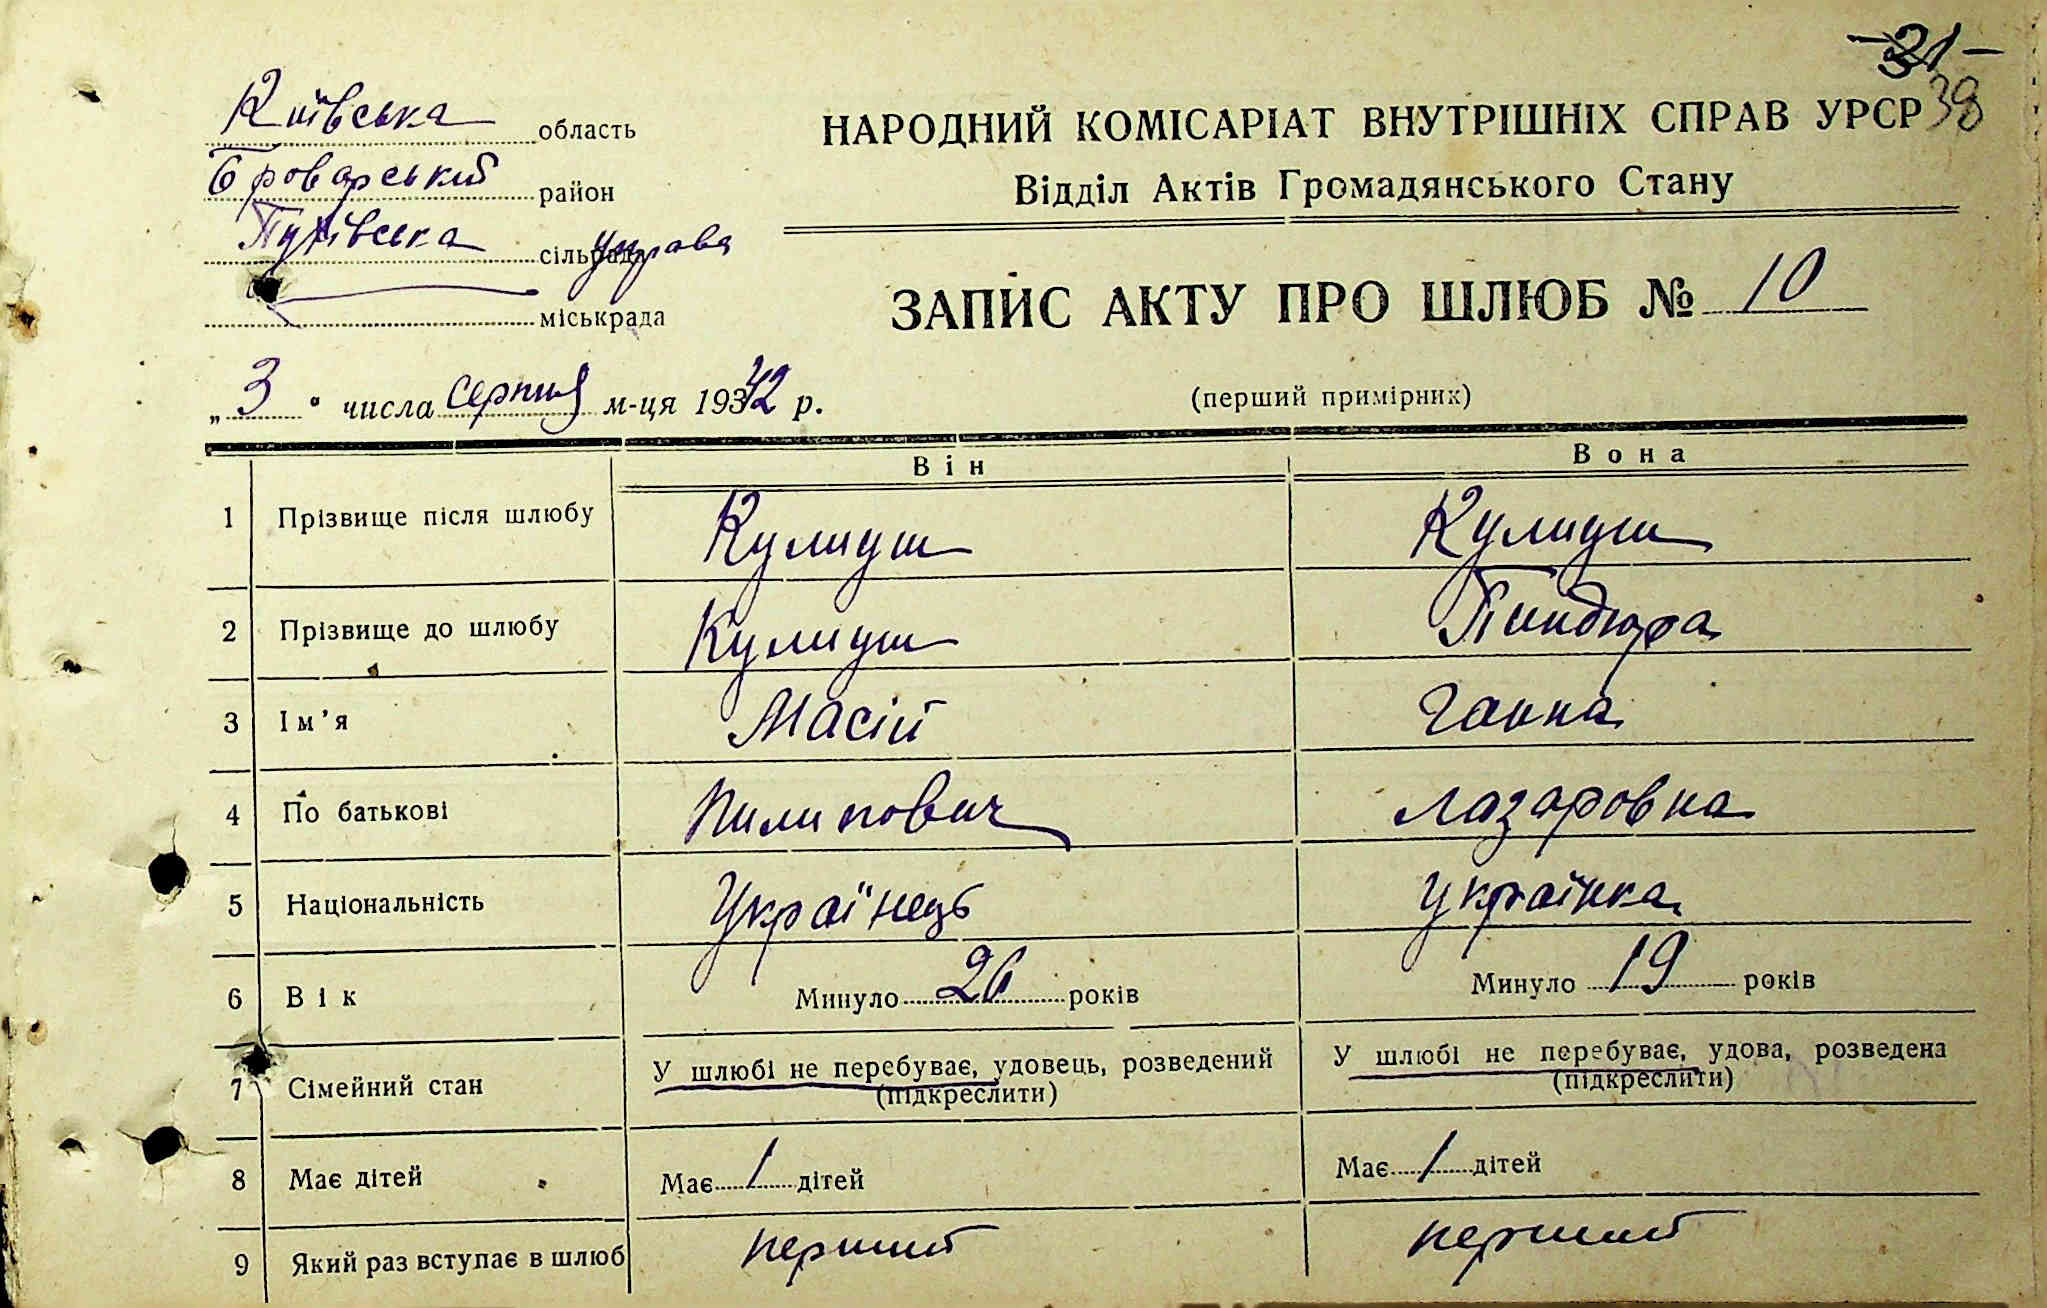 -31-
38
Київська область
Броварський район
Пухівська сільрада управа
міськрада
НАРОДНИЙ КОМІСАРІАТ ВНУТРІШНІХ СПРАВ УРСР
Відділ Актів Громадянського Стану
ЗАПИС АКТУ ПРО ШЛЮБ № 10
„3" числа серпня м-ця 1942 р.
(перший примірник)
Він Вона
1 Прізвище після шлюбу Кулиуш Кулиуш
2 Прізвище до шлюбу Кулиуш Пиндюра
3 Ім'я Масій Ганна
4 По батькові Пилипович Лазаровна
5 Національність Українець Українка
6 Вік Минуло 26 років Минуло 19 років
7 Сімейний стан У шлюбі не перебуває, удовець, розведений У шлюбі не перебуває, удова, розведена
(підкреслити) (підкреслити)
8 Має дітей Має / дітей Має / дітей
9 Який раз вступає в шлюб перший перший